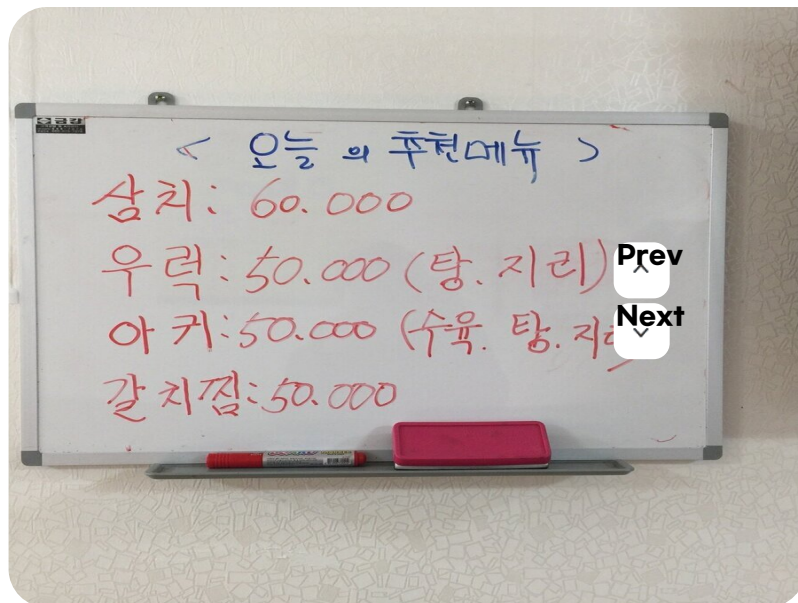 < 오늘의 추천메뉴 >
삼치: 60.000
우럭: 50.000 (탕. 지리)
아귀: 50.000 (수육. 탕.
갈치찜: 50.000
Prev
Next